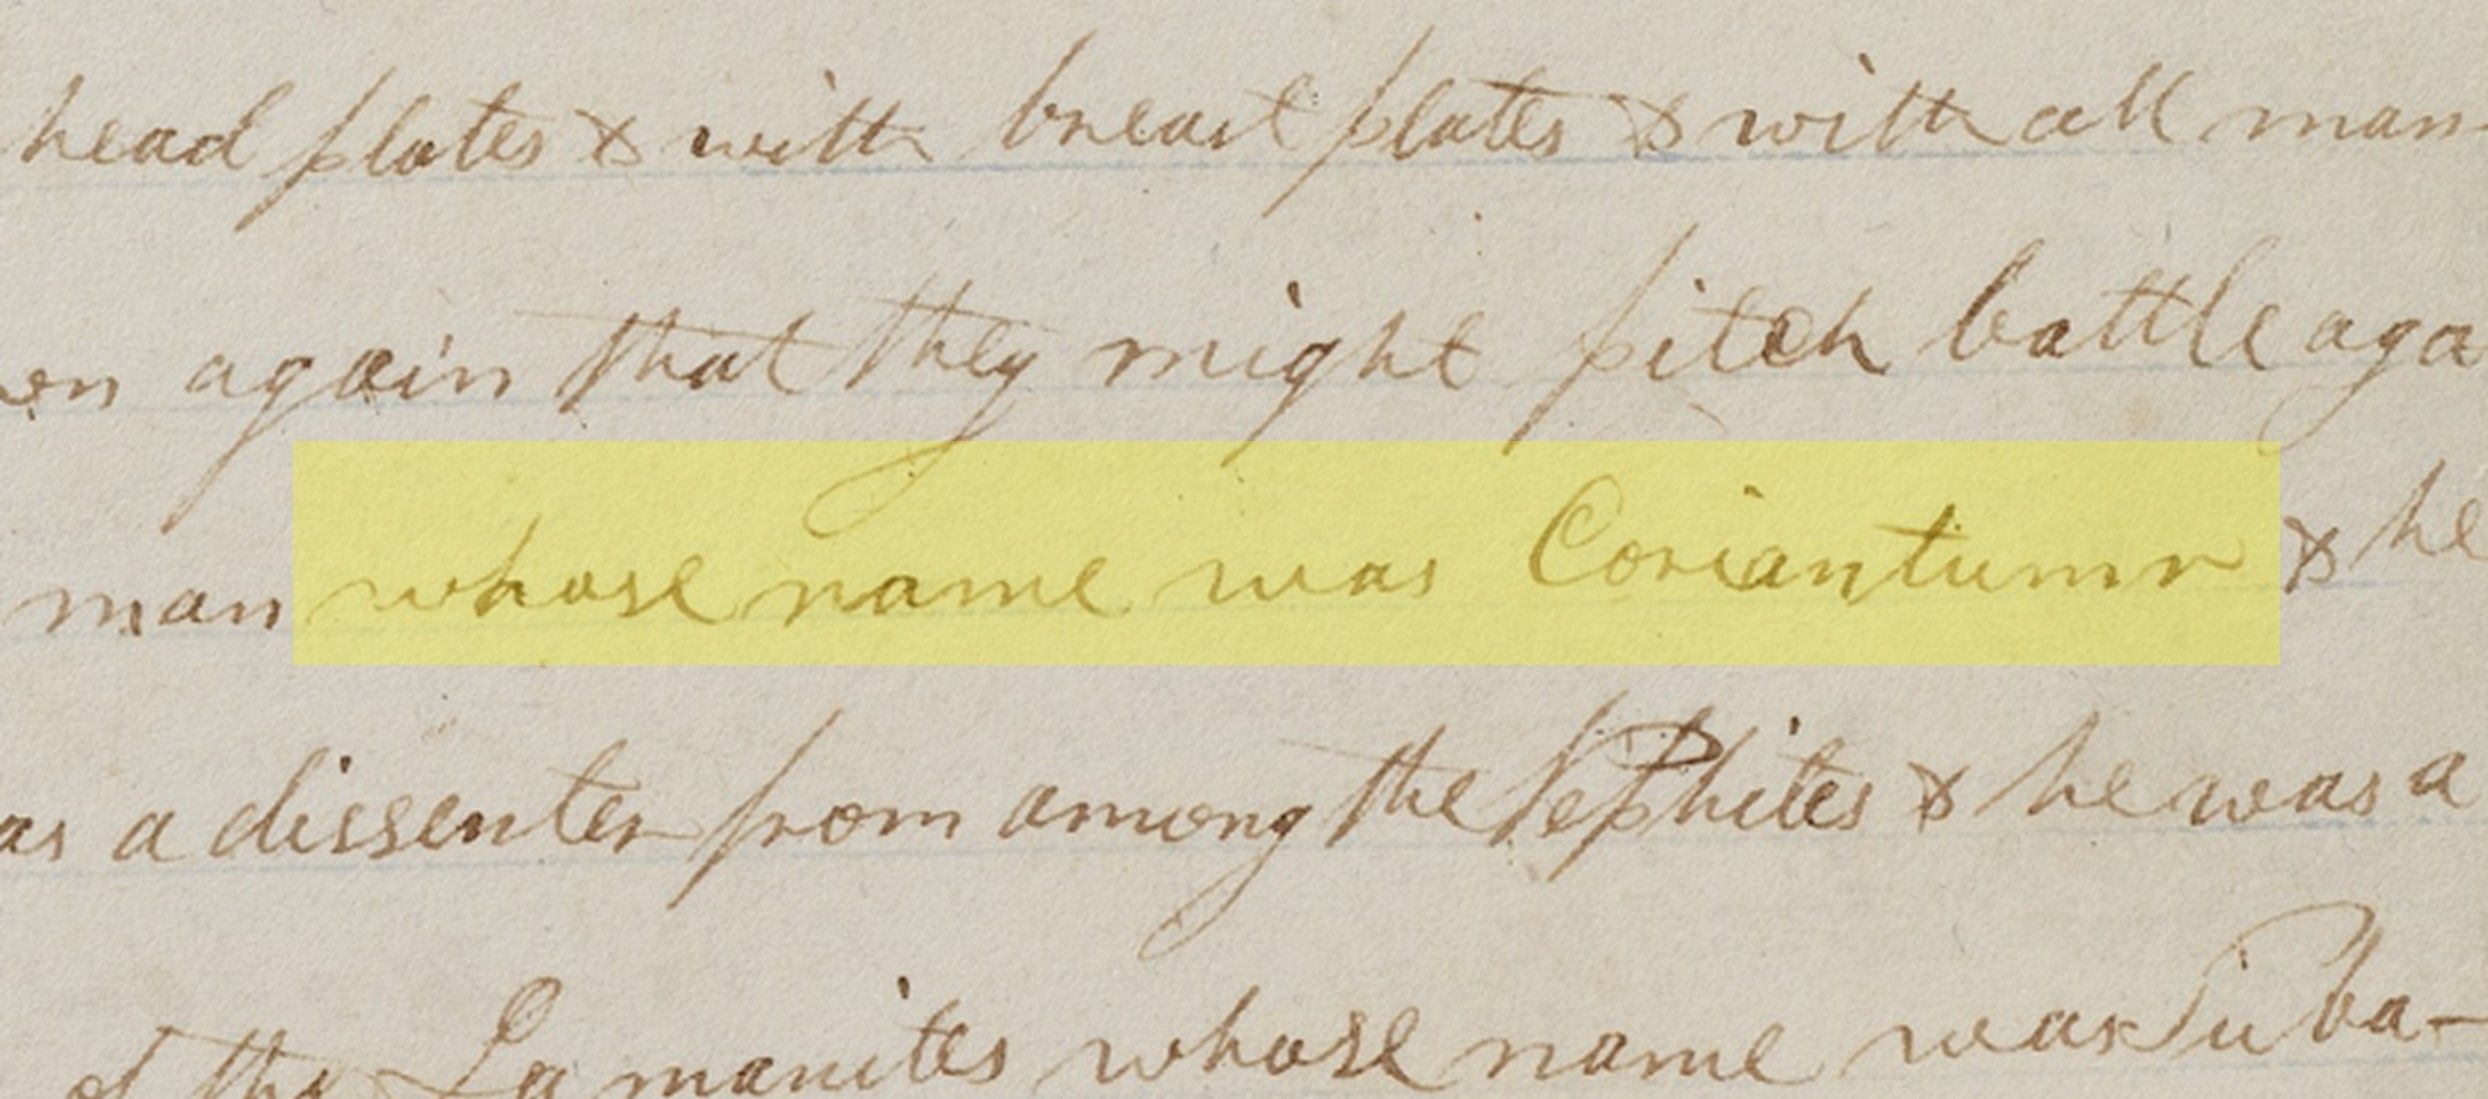 head plates & with breast plates & with all man-
on again that they might pitch battle aga
man whose name was Coriantumr & he
as a dissenter from among the Nephites & he was a
of the Lamanites whose name was Tuba-